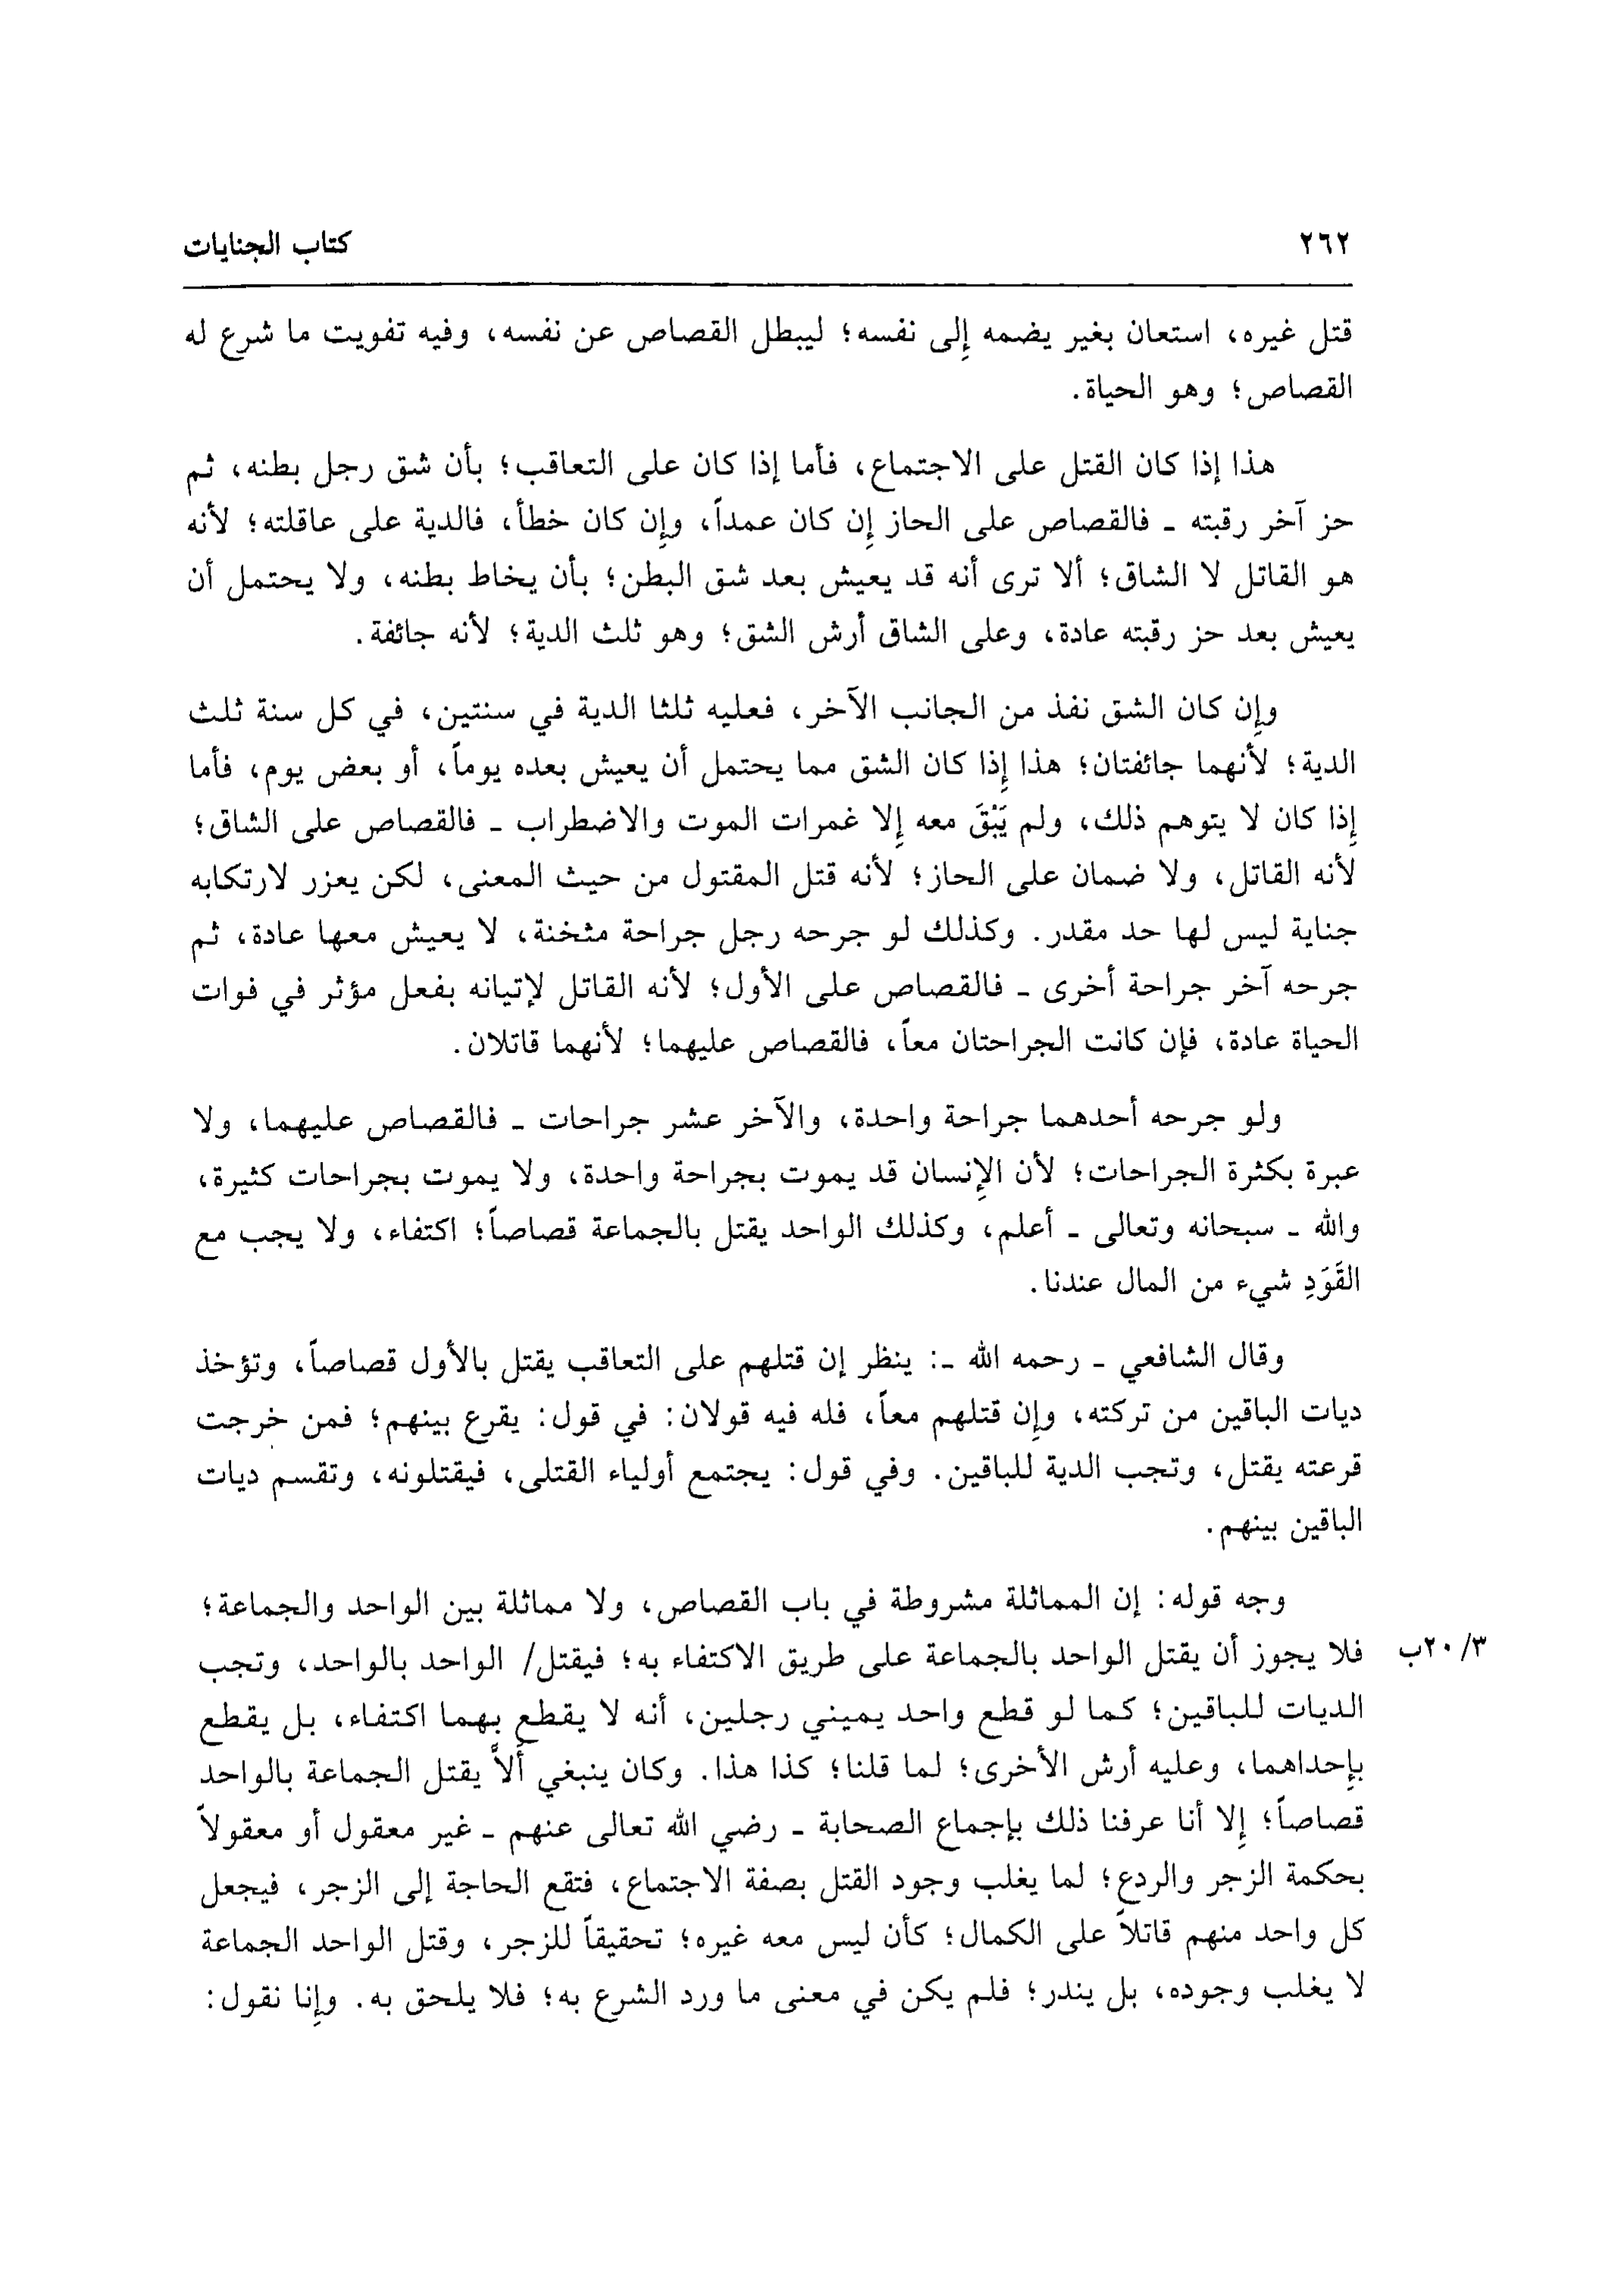 ٢٦٢
كتاب الجنايات
قتل غيره، استعان بغير يضمه إِلى نفسه؛ ليبطل القصاص عن نفسه، وفيه تفويت ما شرع له
القصاص؛ وهو الحياة.
هذا إذا كان القتل على الاجتماع، فأما إذا كان على التعاقب؛ بأن شق رجل بطنه، ثم
حز آخر رقبته ـ فالقصاص على الحاز إِن كان عمداً، وإِن كان خطأ، فالدية على عاقلته؛ لأنه
هو القاتل لا الشاق؛ ألا ترى أنه قد يعيش بعد شق البطن؛ بأن يخاط بطنه، ولا يحتمل أن
يعيش بعد حز رقبته عادة، وعلى الشاق أرش الشق؛ وهو ثلث الدية؛ لأنه جائفة.
وإِن كان الشق نفذ من الجانب الآخر، فعليه ثلثا الدية في سنتين، في كل سنة ثلث
الدية؛ لأنهما جائفتان؛ هذا إِذا كان الشق مما يحتمل أن يعيش بعده يوماً، أو بعض يوم، فأما
إِذا كان لا يتوهم ذلك، ولم يَبْقَ معه إِلا غمرات الموت والاضطراب ـ فالقصاص على الشاق؛
لأنه القاتل، ولا ضمان على الحاز؛ لأنه قتل المقتول من حيث المعنى، لكن يعزر لارتكابه
جناية ليس لها حد مقدر. وكذلك لو جرحه رجل جراحة مثخنة، لا يعيش معها عادة، ثم
جرحه آخر جراحة أخرى ـ فالقصاص على الأول؛ لأنه القاتل لإتيانه بفعل مؤثر في فوات
الحياة عادة، فإن كانت الجراحتان معاً، فالقصاص عليهما؛ لأنهما قاتلان.
ولو جرحه أحدهما جراحة واحدة، والآخر عشر جراحات ـ فالقصاص عليهما، ولا
عبرة بكثرة الجراحات؛ لأن الإِنسان قد يموت بجراحة واحدة، ولا يموت بجراحات كثيرة،
والله ـ سبحانه وتعالى ـ أعلم، وكذلك الواحد يقتل بالجماعة قصاصاً؛ اكتفاء، ولا يجب مع
القَوَدِ شيء من المال عندنا.
وقال الشافعي ـ رحمه الله ـ: ينظر إن قتلهم على التعاقب يقتل بالأول قصاصاً، وتؤخذ
ديات الباقين من تركته، وإِن قتلهم معاً، فله فيه قولان: في قول: يقرع بينهم؛ فمن خرجت
قرعته يقتل، وتجب الدية للباقين. وفي قول: يجتمع أولياء القتلى، فيقتلونه، وتقسم ديات
الباقين بينهم.
وجه قوله: إن المماثلة مشروطة في باب القصاص، ولا مماثلة بين الواحد والجماعة؛
فلا يجوز أن يقتل الواحد بالجماعة على طريق الاكتفاء به؛ فيقتل/ الواحد بالواحد، وتجب
٣/ ٢٠ب
الديات للباقين؛ كما لو قطع واحد يميني رجلين، أنه لا يقطع بهما اكتفاء، بل يقطع
بإِحداهما، وعليه أرش الأخرى؛ لما قلنا؛ كذا هذا. وكان ينبغي أَلاَّ يقتل الجماعة بالواحد
قصاصاً؛ إِلا أنا عرفنا ذلك بإجماع الصحابة ـ رضي الله تعالى عنهم ـ غير معقول أو معقولاً
بحكمة الزجر والردع؛ لما يغلب وجود القتل بصفة الاجتماع، فتقع الحاجة إلى الزجر، فيجعل
كل واحد منهم قاتلاً على الكمال؛ كأن ليس معه غيره؛ تحقيقاً للزجر، وقتل الواحد الجماعة
لا يغلب وجوده، بل يندر؛ فلم يكن في معنى ما ورد الشرع به؛ فلا يلحق به. وإِنا نقول: